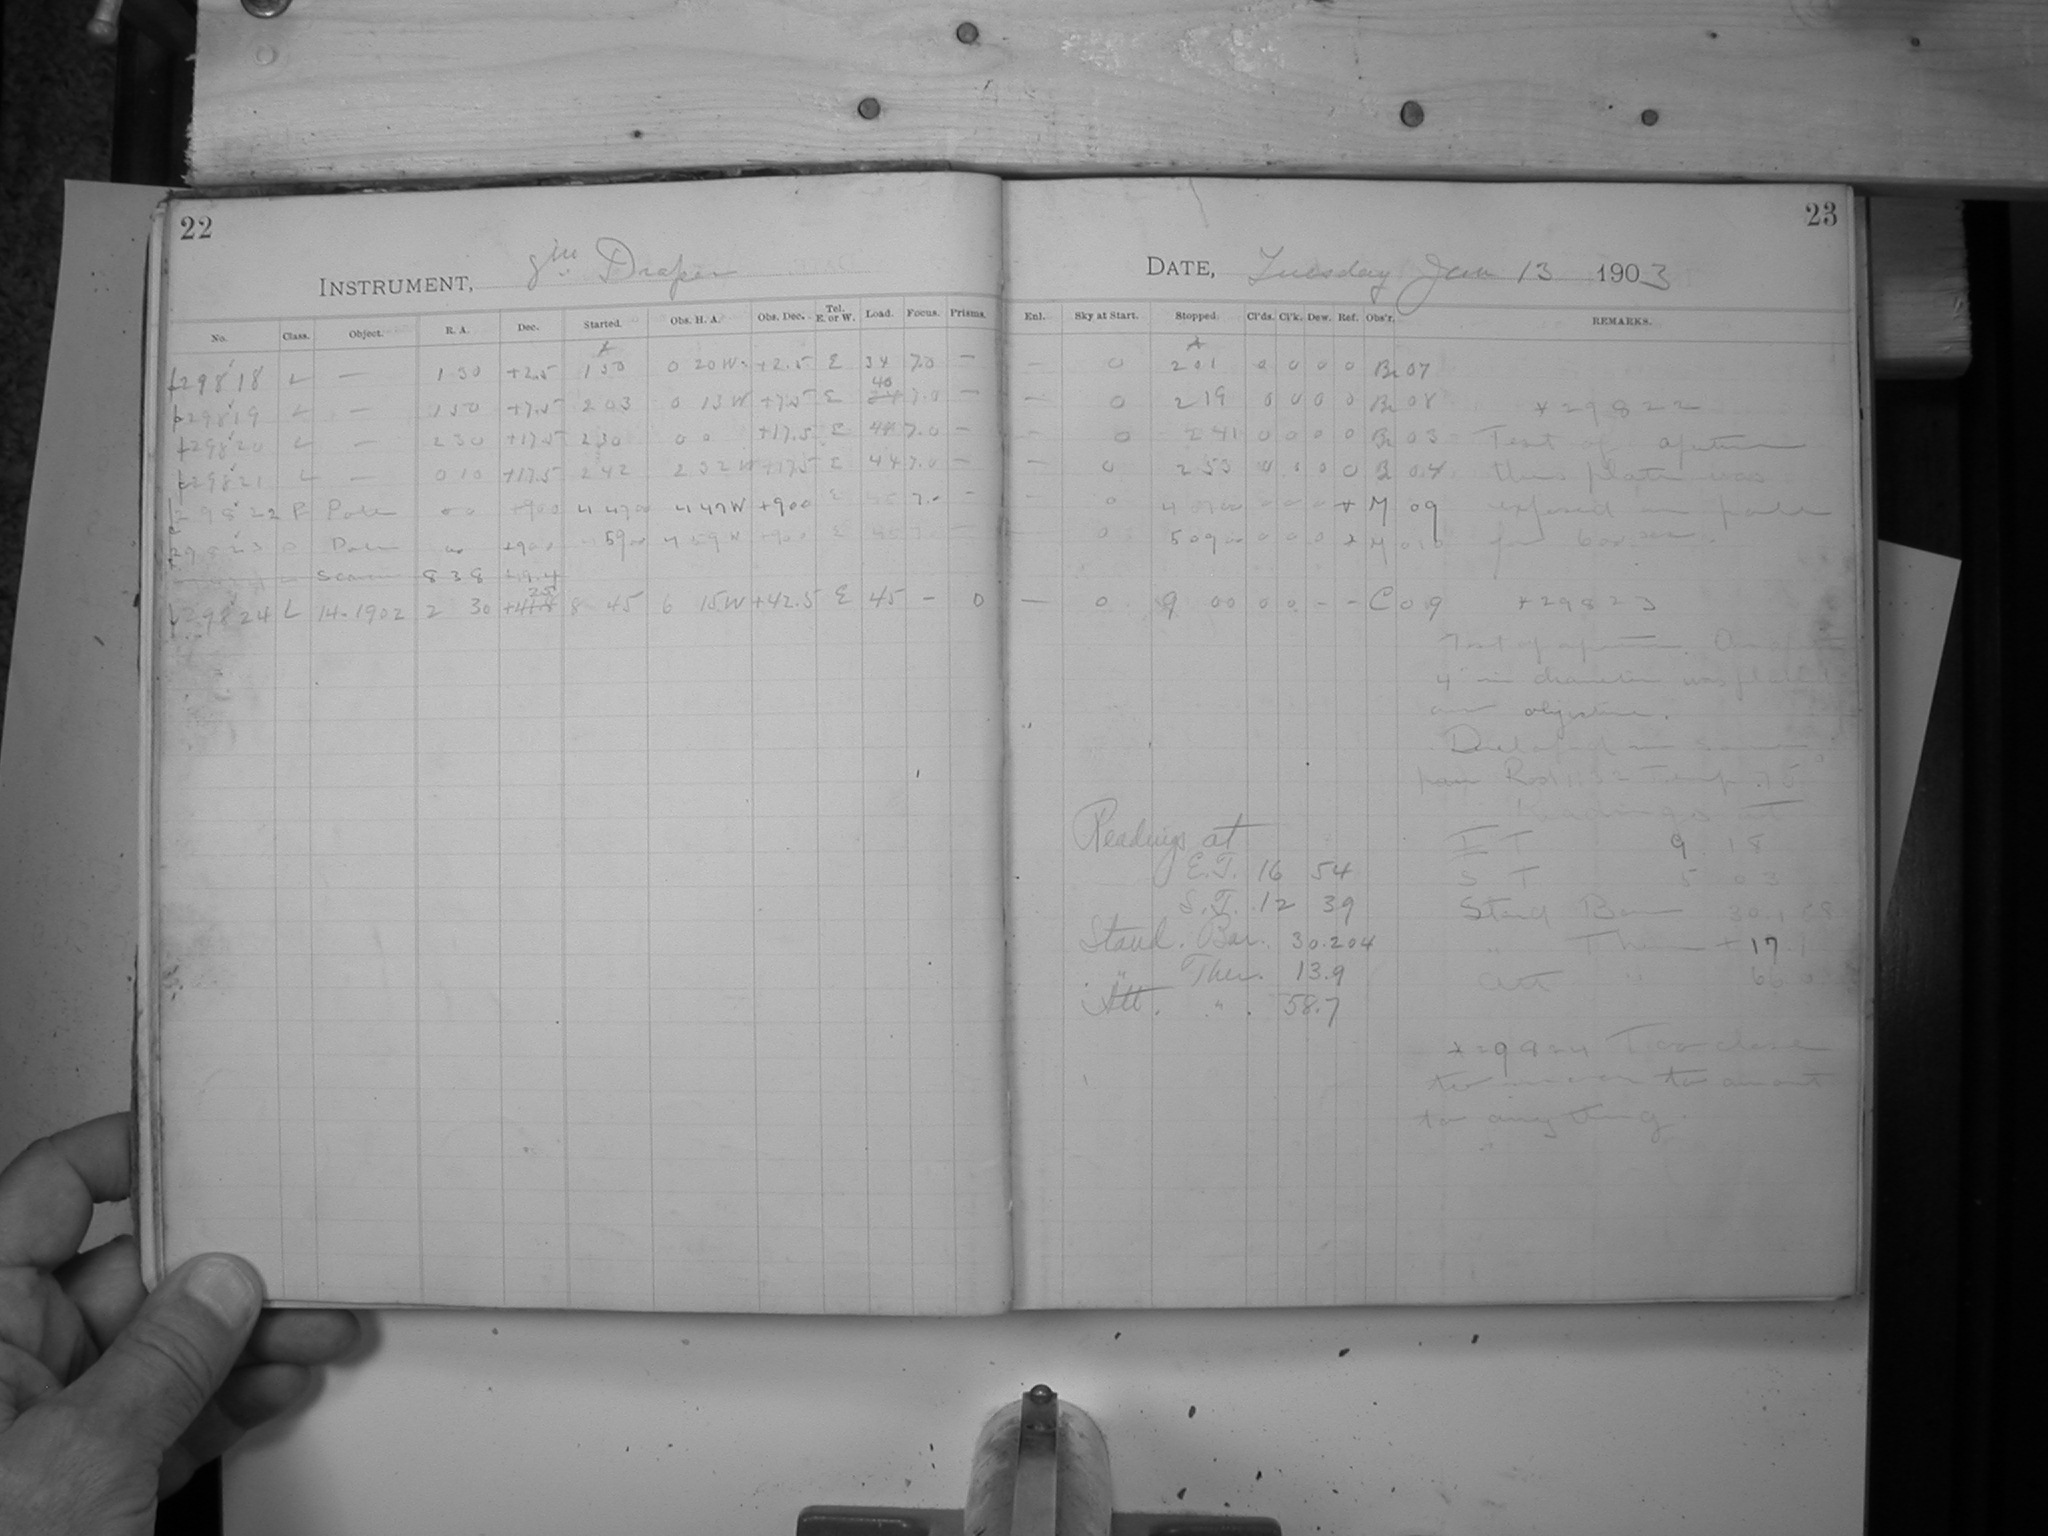 22
INSTRUMENT, 8 in Draper
No. Class. Object. R. A. Dec. Started. Obs. H. A. Obs. Dec. Tel. E. or W. Load. Focus. Prisms.
29818 L — 1 30 +2.5 1 50 0 20 W. +2.5 E 34 7.0 —
29819 L — 1 50 +7.5 2 03 0 13 W +7.5 E 40 7.0 —
29820 L — 2 30 +17.5 2 30 0 0 +17.5 E 44 7.0 —
29821 L — 0 10 +17.5 2 42 2 32 W +17.5 E 44 7.0 —
29822 P Pole 0 0 +900 4 47 00 4 47 W +900 E 7.0 —
29823 Pole +900 59 00 4 59 W +900 E
8 38
29824 L 14.1902 2 30 8 45 6 15 W +42.5 E 45 — 0
23
DATE, Tuesday Jan 13 1903
Enl. Sky at Start. Stopped. Cl'ds. Cl'k. Dew. Ref. Obs'r. REMARKS.
— 0 2 01 0 0 0 0 Br 07
— 0 2 19 0 0 0 0 Br 08 *29822
— 0 2 41 0 0 0 0 Br 03 Test of aperture
— 0 2 53 0 0 B 04 this plate was
— 0 0 0 0 + M 09 exposed on pole
0 5 09 00 0 0 0 + M 010 for 600 sec.
— 0 9 00 0 0 - - C 09 *29823
Test of aperture.
4" in diameter was placed
objective.
Developed in same
pan Temp. 75°
Readings at
E T 9 18
S T 5 03
Stand Bar 30.
" Ther + 17.1
Att " 66.0
Readings at
E.T. 16 54
S.T. 12 39
Stand. Bar. 30.204
" Ther. 13.9
Att. " . 58.7
*29824 Too close
to moon to amount
to anything.